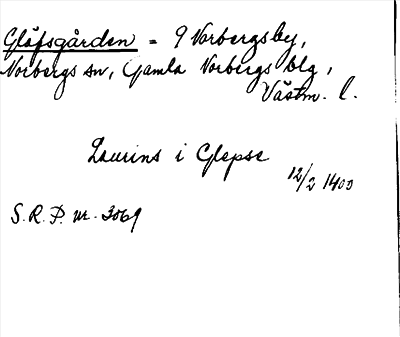 Gläfsgården = 9 Norbergsby,
Norbergs sn, Gamla Norbergs blg,
Västm. l.
Laurins i Glepse
12/2 1400
S.R.P. nr. 3069